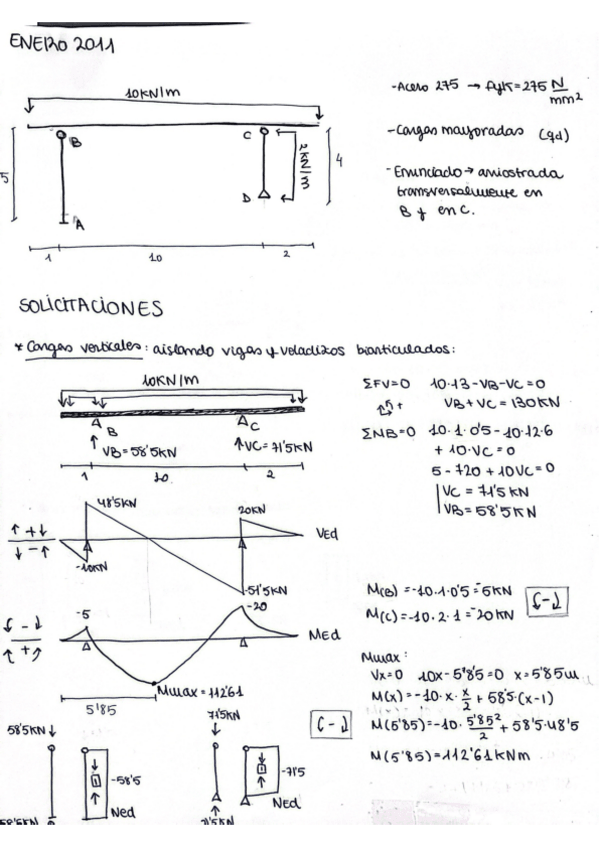 ENERO 2011
10KN/m
B
C
2KN/m
4
5
D
A
1
10
2
-Acero 275 → fyk=275 N/mm²
-Cargas mayoradas (qd)
-Enunciado → arriostrada
transversalmente en
B y en C.
SOLICITACIONES
* Cargas verticales: aislando vigas y voladizos biarticulados:
10KN/m
B
C
VB=58'5KN
VC=71'5KN
1
10
2
ΣFV=0 10·13-VB-VC=0
VB+VC=130KN
ΣMB=0 10·1·0'5-10·12·6
+10·VC=0
5-720+10VC=0
VC=71'5KN
VB=58'5KN
48'5KN
20KN
Ved
-10KN
-51'5KN
-5
-20
Med
Mmax=112'61
5'85
M(B)=-10·1·0'5=-5KN
M(C)=-10·2·1=-20KN
Mmax:
Vx=0 10x-58'5=0 x=5'85m
M(x)=-10·x·x/2+58'5·(x-1)
M(5'85)=-10·5'85²/2+58'5·48'5
M(5'85)=112'61KNm
58'5KN
-58'5
Ned
58'5KN
71'5KN
-71'5
Ned
71'5KN